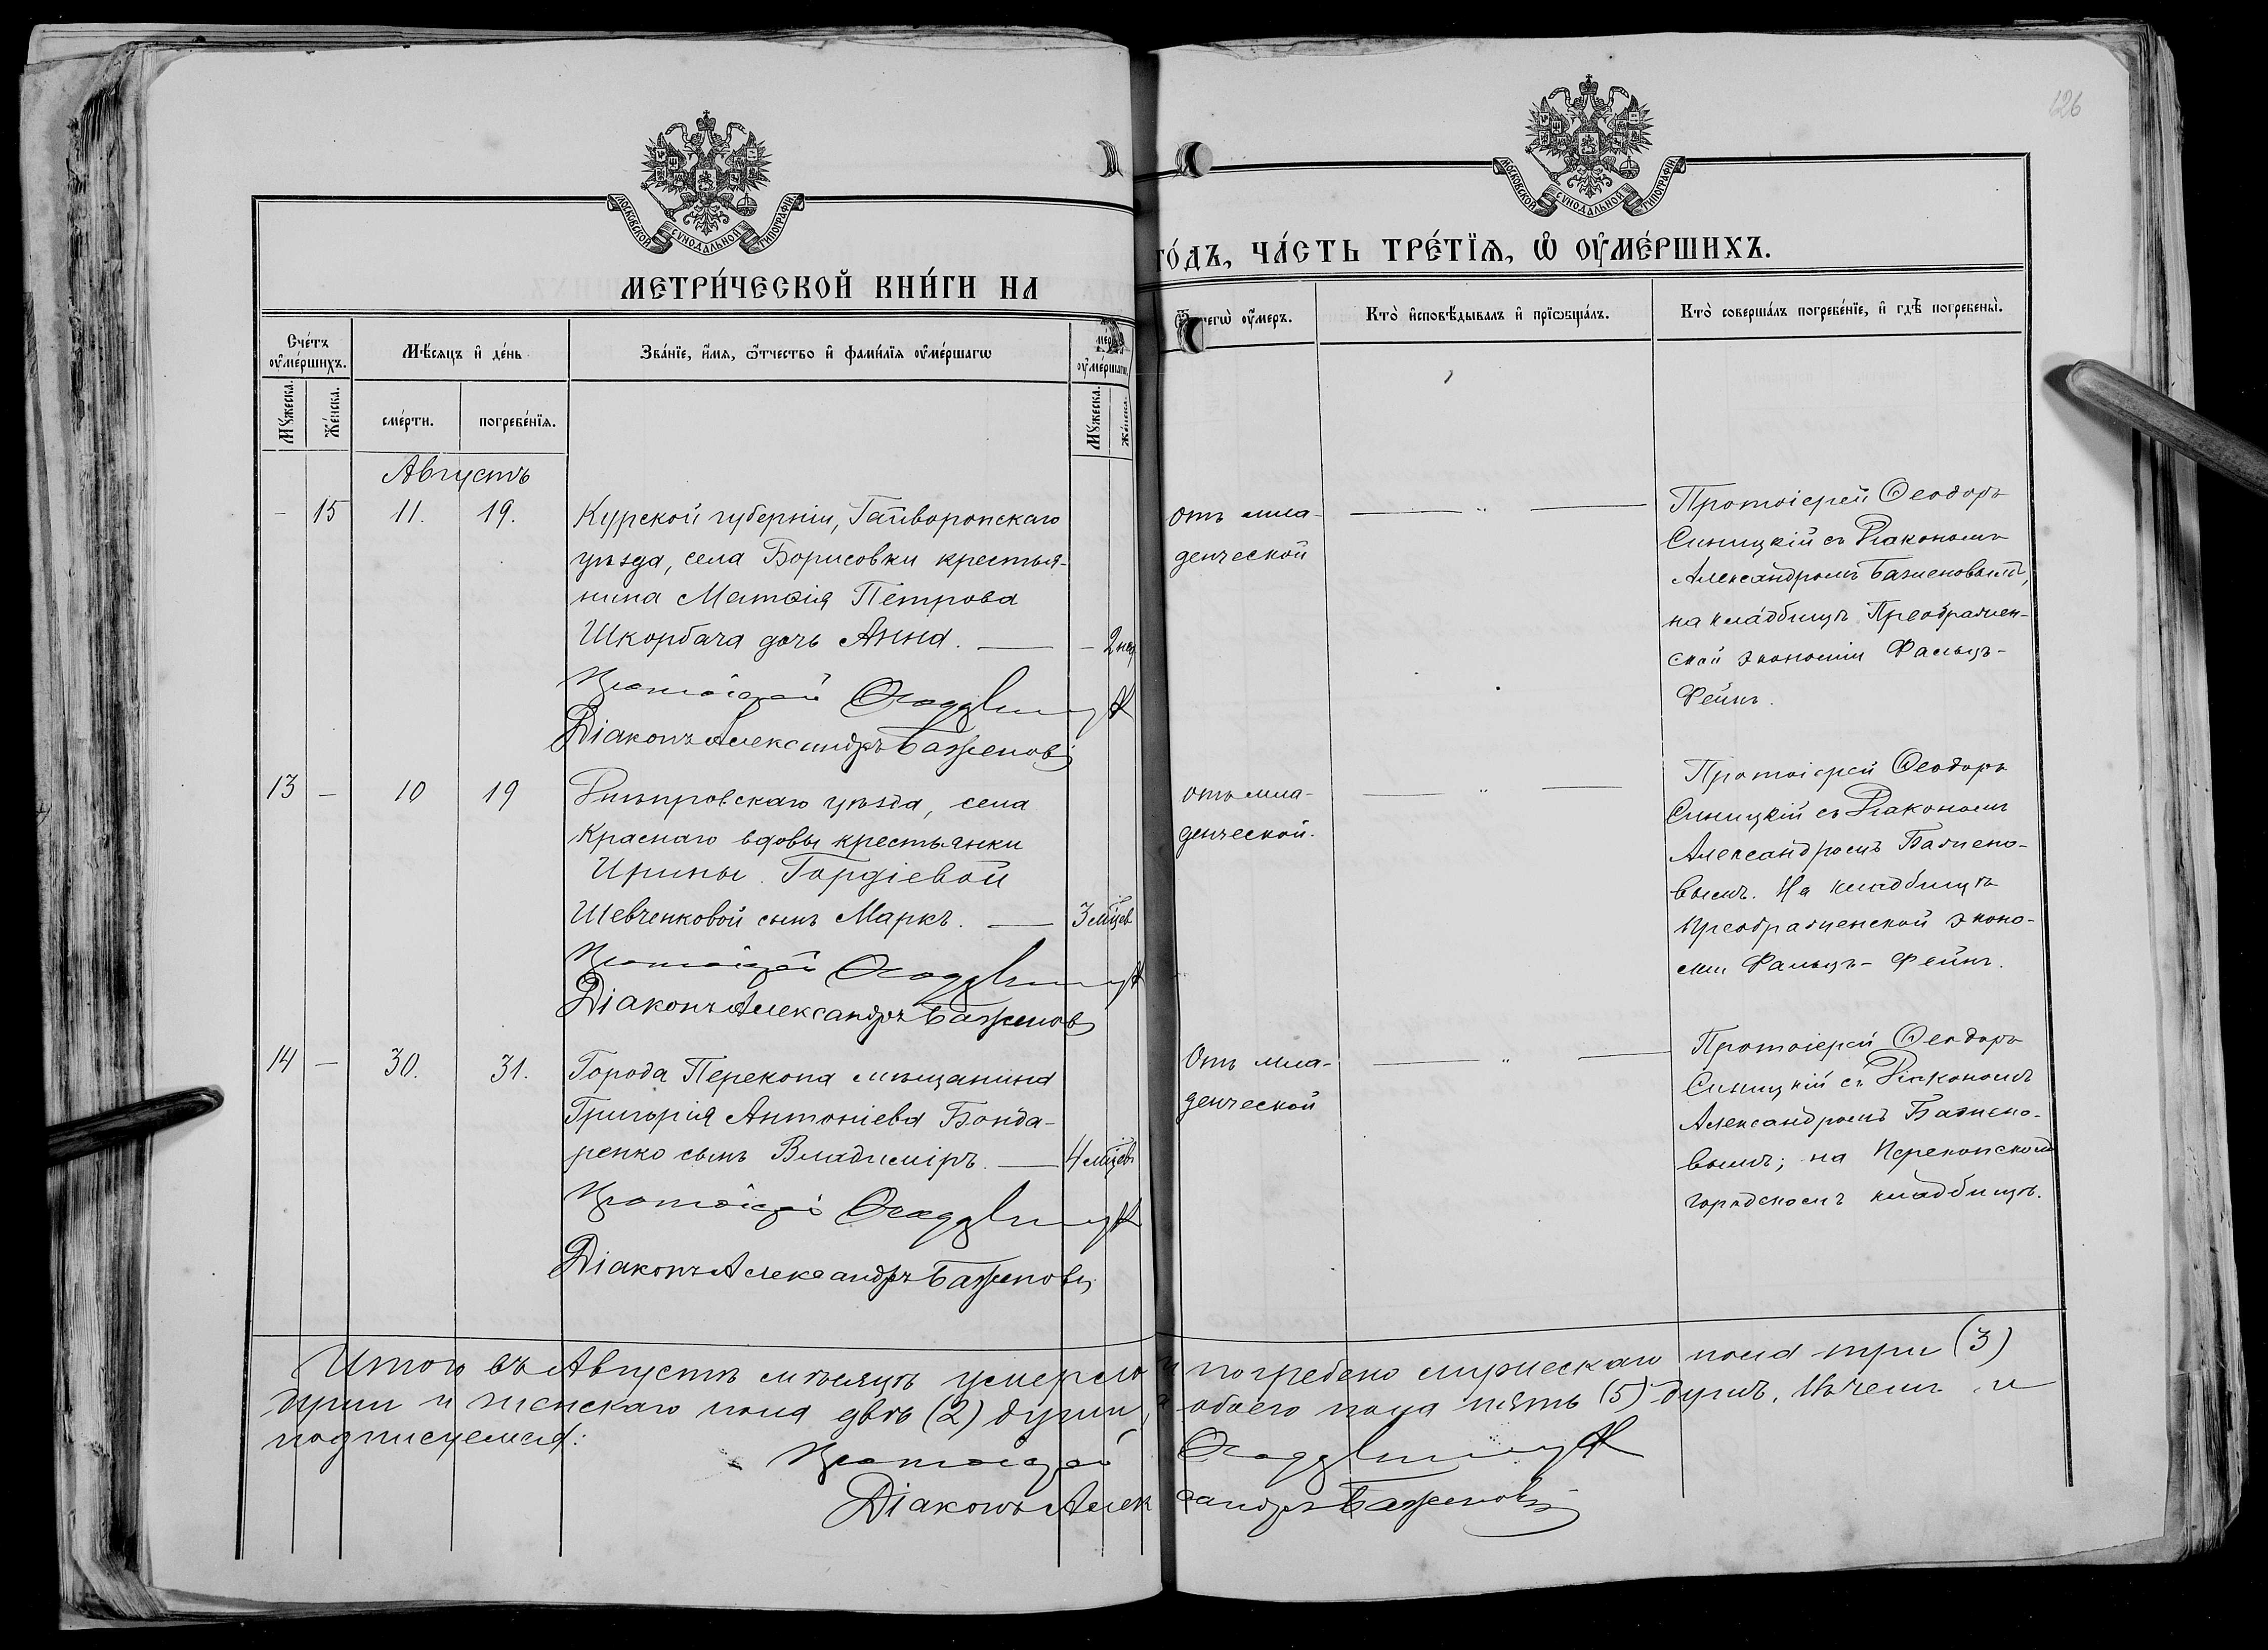 126
МОСКОВСКОЙ СУНОДАЛЬНОЙ ТИПОГРАФІИ
МОСКОВСКОЙ СУНОДАЛЬНОЙ ТИПОГРАФІИ
МЕТРИ́ЧЕСКОЙ КНИ́ГИ НА
ГО́ДЪ, ЧА́СТЬ ТРЕ́ТЇѦ, Ѡ҆ ОУ҆МЕ́РШИХЪ.
Сче́тъ оу҆ме́ршихъ.
Мѣ́сяцъ и҆ де́нь
Зва́нїе, и҆́мя, ѻ҆́тчество и҆ фами́лїя оу҆ме́ршагѡ
оу҆ме́ршагѡ.
чегѡ̀ оу҆́меръ.
Кто̀ и҆сповѣ́дывалъ и҆ прїѡбща́лъ.
Кто̀ соверша́лъ погребе́нїе, и҆ гдѣ̀ погребены̀.
Мꙋ́жеска.
Же́нска.
сме́рти.
погребе́нїя.
Мꙋ́жеска.
Же́нска.
Августъ
- 15 11. 19. Курской губерніи, Гайворонскаго
уѣзда, села Борисовки крестья-
нина Матѳія Петрова
Шкорбача дочь Анна. — - 2 нед
Протоіерей Ѳеодоръ Синицкій
Діаконъ Александръ Баженовъ
от мла-
денческой
— „ —
Протоіерей Ѳеодоръ
Синицкій съ Діакономъ
Александромъ Баженовымъ,
на кладбищѣ Преображен-
ской экономіи Фальцъ-
Фейнъ.
13 — 10 19 Днѣпровскаго уѣзда, села
Краснаго вдовы крестьянки
Ирины Гордіевой
Шевченковой сынъ Маркъ. — 3 мѣсцев
Протоіерей Ѳеодоръ Синицкій
Діаконъ Александръ Баженовъ
отъ мла-
денческой.
— „ —
Протоіерей Ѳеодоръ
Синицкій съ Діакономъ
Александромъ Бажено-
вымъ. На кладбищѣ
Преображенской эконо-
міи Фальцъ-Фейнъ.
14 — 30. 31. Города Перекопа мѣщанина
Григорія Антоніева Бонда-
ренко сынъ Владиміръ. — 4 мѣсцевъ
Протоіерей Ѳеодоръ Синицкій
Діаконъ Александръ Баженовъ
Отъ мла-
денческой
— „ —
Протоіерей Ѳеодоръ
Синицкій съ Діакономъ
Александромъ Бажено-
вымъ; на Перекопскомъ
городскомъ кладбищѣ.
Итого въ Августѣ мѣсяцѣ умерло и погребено мужескаго пола три (3)
души и женскаго пола двѣ (2) души, а обоего пола пять (5) душъ, и
подписуемся:
Протоіерей Ѳеодоръ Синицкій
Діаконъ Александръ Баженовъ